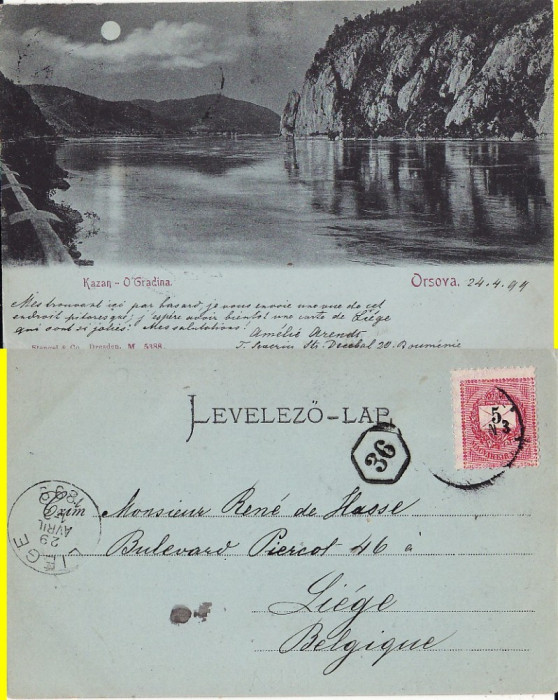 Kazan - O'Gradina.
Orsova. 24.4.99
Mes trouvant ici par hasard, je vous envoie une vue de cet
endroit pitoresque; j'espére avoir bientôt une carte de Liége
qui ont si jolies! Mes salutations!
Amélie Arendt
T. Severin Str. Decebal 20. Rouménie
Stengel & Co. Dresden. M 5388.
LEVELEZÖ-LAP
5
36
29
AVRIL
Monsieur René de Hasse
Bulevard Piercot 46 à
Liége
Belgique